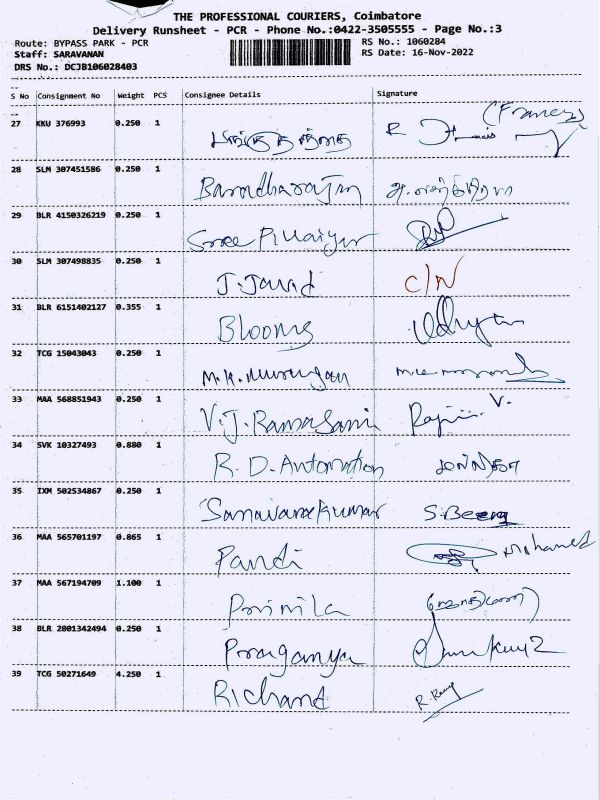 THE PROFESSIONAL COURIERS, Coimbatore
Delivery Runsheet - PCR - Phone No.:0422-3505555 - Page No.:3
Route: BYPASS PARK - PCR
Staff: SARAVANAN
DRS No.: DCJB106028403
RS No.: 1060284
RS Date: 16-Nov-2022
S No Consignment No Weight PCS Consignee Details Signature
27 KKU 376993 0.250 1 (Francis)
28 SLM 307451586 0.250 1 Baradharajan
29 BLR 4150326219 0.250 1 Sree Pillaiyar
30 SLM 307498835 0.250 1 J. Javid C/N
31 BLR 6151402127 0.355 1 Blooms
32 TCG 15043043 0.250 1 M.K. Murugan
33 MAA 568851943 0.250 1 V.J. Ramasami
34 SVK 10327493 0.880 1 R.D. Automation
35 IXM 502534867 0.250 1 Saravanakumar
36 MAA 565701197 0.865 1 Pandi Mohamed
37 MAA 567194709 1.100 1 Primila
38 BLR 2801342494 0.250 1
39 TCG 50271649 4.250 1 Richard